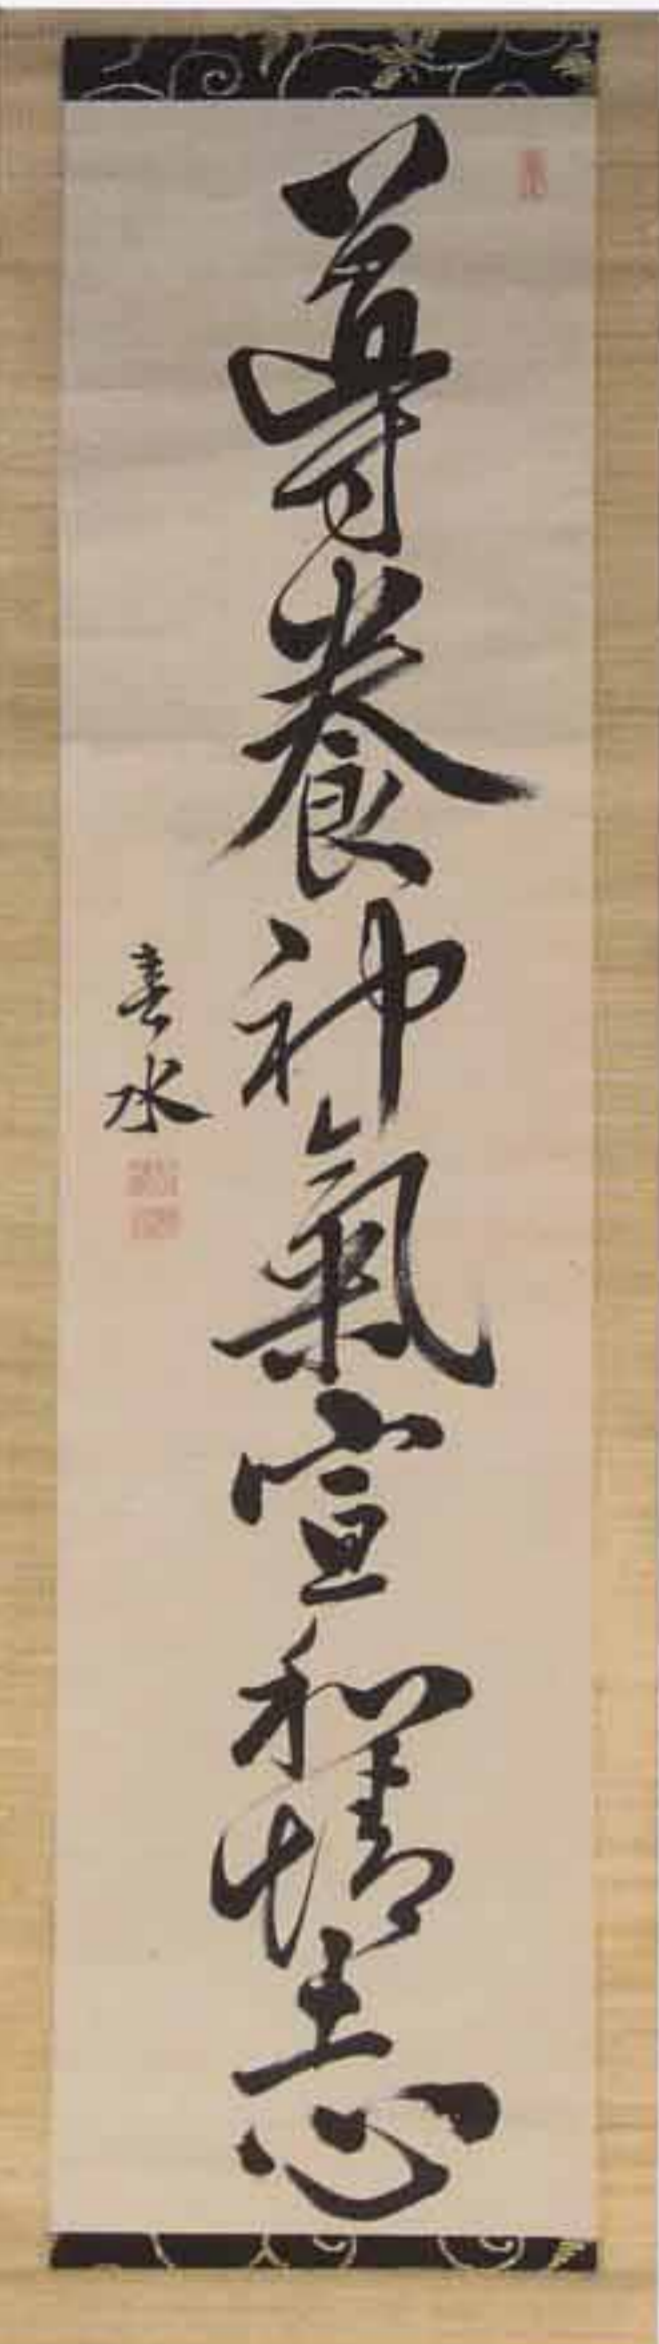 導養神氣宣和情志
春水